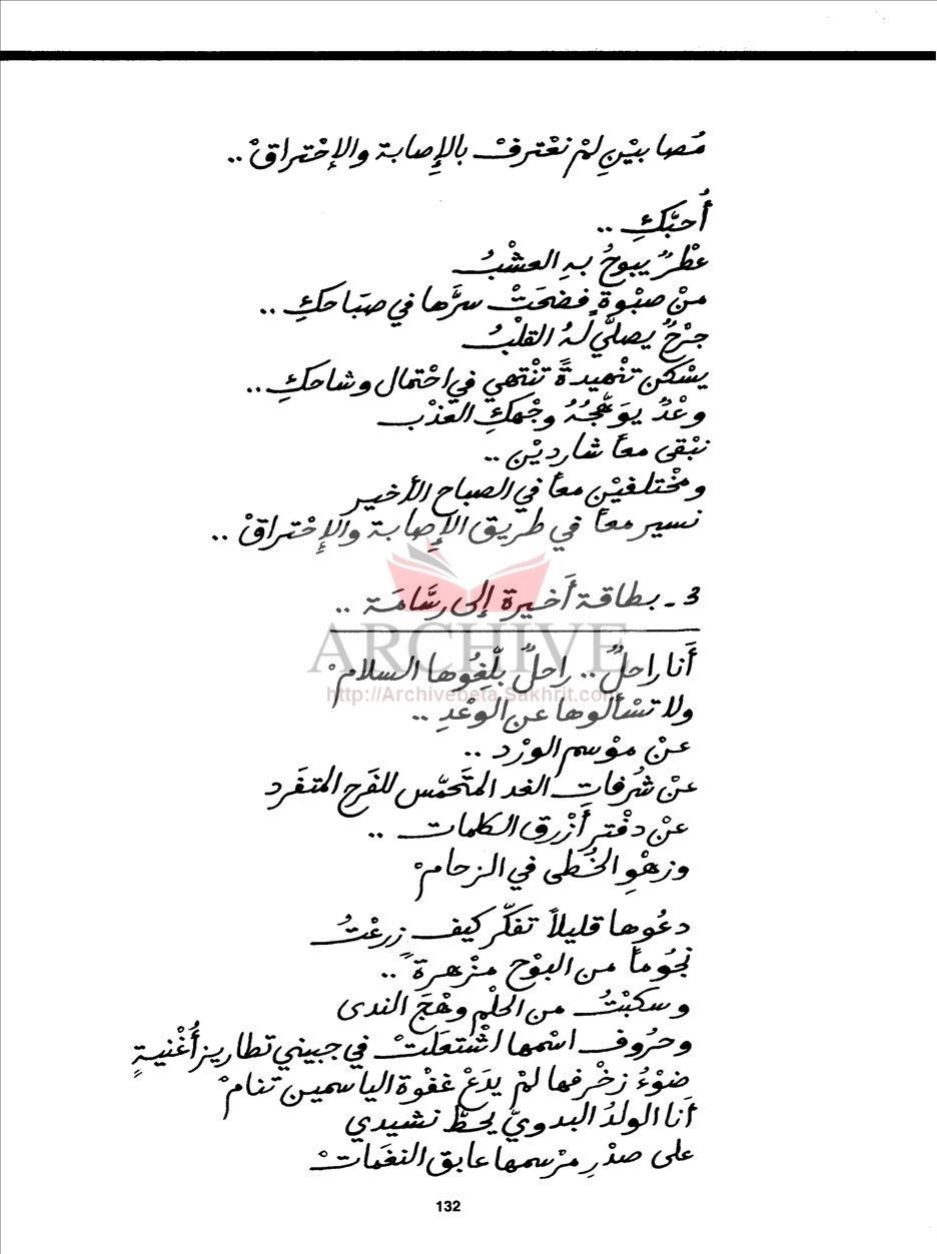 مُصابيْنِ لمْ نعْترفْ بالإِصابة والإحْتراقْ ..
أُحبّكِ ..
عطْرٌ يبوحُ بهِ العشْبُ
منْ صبْوةٍ فضحَتْ سرَّها في صبَاحكِ ..
جرْحٌ يصلّي لهُ القلْبُ
يسْكن تنْهيدةً تنْتهي في احْتمال وشاحكِ ..
وعْدٌ يوَهّجُهُ وجْهكِ العَذْب
نبْقى معاً شارديْن ..
ومخْتلفيْن معاً في الصباح الأخير
نسير معاً في طريق الإصابة والإِحْتراقْ ..
3 ـ بطاقة أَخيرة إلى رسَّامَة ..
ARCHIVE
http://Archivebeta.Sakhrit.com
أَنا راحلٌ .. راحلٌ بلّغُوها السلامْ
ولا تسْألوها عن الوعْدِ ..
عنْ موْسم الورْد ..
عنْ شُرفات الغد المتَحمّس للفَرح المتفَرد
عنْ دفْترٍ أَزْرق الكلمات ..
وزهْوِ الخُطى في الزحامْ
دعُوها قليلاً تفكّر كيف زرعْتُ
نجُوماً من البوْح مزْهرةً ..
وسكبْتُ من الحلْم وهْجَ الندى
وحرُوف اسْمها اشْتعَلتْ في جبيني تطاريز أُغْنيةٍ
ضوْءُ زخْرفها لمْ يدَعْ غفْوة الياسمين تنامْ
أنا الولدُ البدويّ يحطّ نشيدي
على صدْرِ مرْسمها عابق النغَماتْ
132